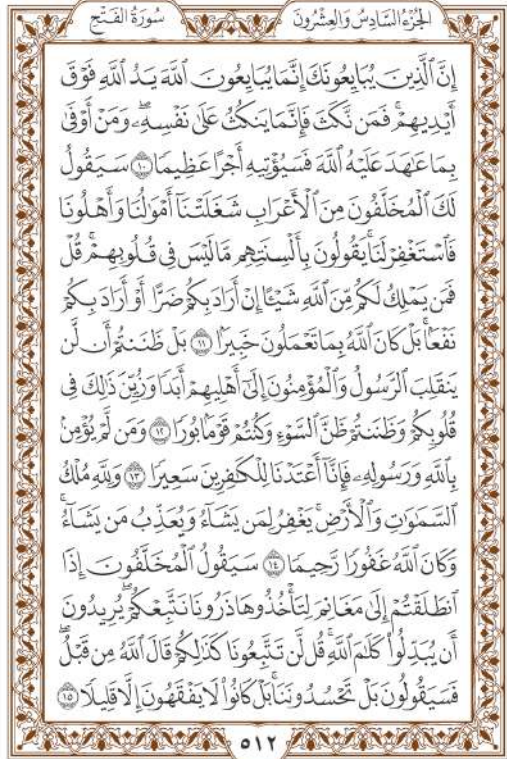 سُورَةُ الفَتْحِ
الجُزْءُ السَّادِسُ وَالعِشْرُونَ
إِنَّ ٱلَّذِينَ يُبَايِعُونَكَ إِنَّمَا يُبَايِعُونَ ٱللَّهَ يَدُ ٱللَّهِ فَوْقَ
أَيْدِيهِمْۚ فَمَن نَّكَثَ فَإِنَّمَا يَنكُثُ عَلَىٰ نَفْسِهِۦۖ وَمَنْ أَوْفَىٰ
بِمَا عَٰهَدَ عَلَيْهُ ٱللَّهَ فَسَيُؤْتِيهِ أَجْرًا عَظِيمًا ۝١٠ سَيَقُولُ
لَكَ ٱلْمُخَلَّفُونَ مِنَ ٱلْأَعْرَابِ شَغَلَتْنَآ أَمْوَٰلُنَا وَأَهْلُونَا
فَٱسْتَغْفِرْ لَنَاۚ يَقُولُونَ بِأَلْسِنَتِهِم مَّا لَيْسَ فِى قُلُوبِهِمْۚ قُلْ
فَمَن يَمْلِكُ لَكُم مِّنَ ٱللَّهِ شَيْـًٔا إِنْ أَرَادَ بِكُمْ ضَرًّا أَوْ أَرَادَ بِكُمْ
نَفْعَۢاۚ بَلْ كَانَ ٱللَّهُ بِمَا تَعْمَلُونَ خَبِيرًۢا ۝١١ بَلْ ظَنَنتُمْ أَن لَّن
يَنقَلِبَ ٱلرَّسُولُ وَٱلْمُؤْمِنُونَ إِلَىٰٓ أَهْلِيهِمْ أَبَدًا وَزُيِّنَ ذَٰلِكَ فِى
قُلُوبِكُمْ وَظَنَنتُمْ ظَنَّ ٱلسَّوْءِ وَكُنتُمْ قَوْمًۢا بُورًا ۝١٢ وَمَن لَّمْ يُؤْمِنۢ
بِٱللَّهِ وَرَسُولِهِۦ فَإِنَّآ أَعْتَدْنَا لِلْكَٰفِرِينَ سَعِيرًا ۝١٣ وَلِلَّهِ مُلْكُ
ٱلسَّمَٰوَٰتِ وَٱلْأَرْضِۚ يَغْفِرُ لِمَن يَشَآءُ وَيُعَذِّبُ مَن يَشَآءُۚ
وَكَانَ ٱللَّهُ غَفُورًا رَّحِيمًا ۝١٤ سَيَقُولُ ٱلْمُخَلَّفُونَ إِذَا
ٱنطَلَقْتُمْ إِلَىٰ مَغَانِمَ لِتَأْخُذُوهَا ذَرُونَا نَتَّبِعْكُمْۖ يُرِيدُونَ
أَن يُبَدِّلُوا۟ كَلَٰمَ ٱللَّهِۚ قُل لَّن تَتَّبِعُونَا كَذَٰلِكُمْ قَالَ ٱللَّهُ مِن قَبْلُۖ
فَسَيَقُولُونَ بَلْ تَحْسُدُونَنَاۚ بَلْ كَانُوا۟ لَا يَفْقَهُونَ إِلَّا قَلِيلًا ۝١٥
٥١٢